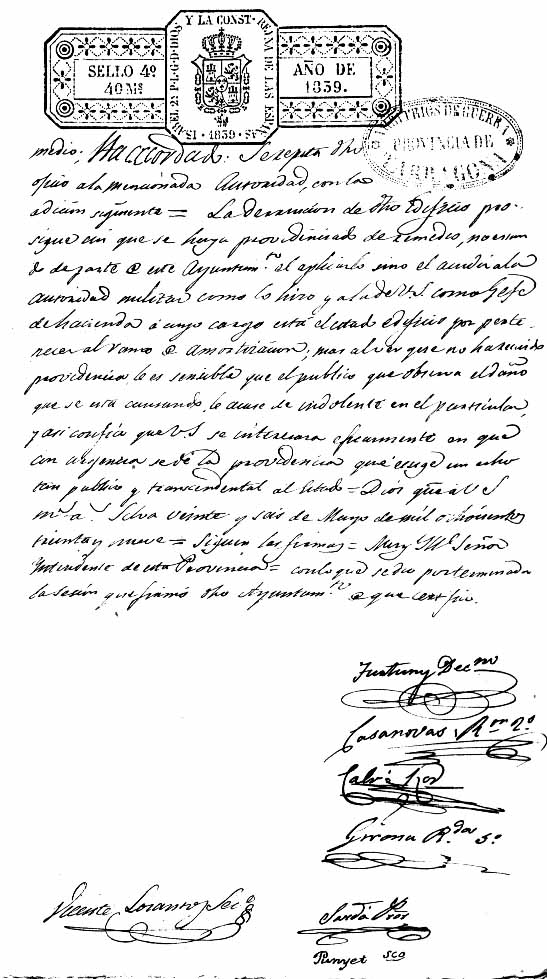 SELLO 4º
40 Ms
ISABEL 2ª P. L. G. D. DIOS Y LA CONST. REYNA DE LAS ESPAÑAS
· 1839 ·
AÑO DE
1839.
ARBITRIOS DE GUERRA
PROVINCIA DE
TARRAGONA
medio: Ha acordad: Se repita dho
oficio a la mencionada Autoridad, con la
adicion siguiente = La derruicion de dho Edificio pro-
sigue sin que se haya providenciado de remedio, no
de parte @ este Ayuntam.to el aplicarlo sino el acudir a la
autoridad militar como lo hizo y a la de V.S. como Gefe
de hacienda á cuyo cargo está el citad edificio por perte-
necer al ramo @ Amortizacion; mas al ver que no ha recaido
providencia le es sensible que el publico que observa el daño
que se está causando, le acuse de indolente en el particular,
y asi confia que V.S. se interesara eficazmente en que
con urgencia se dé la providencia que exige un echo
tan publico y transcendental al Estado = Dios gũe a V.S.
m.s a.s Selva veinte y seis de Marzo de mil ochocientos
treinta y nueve = Siguen las firmas = Muy Ill.e Señor
Intendente de esta Provincia = con lo que se dio por terminada
la sesión que firmó dho Ayuntam.to @ que certifico.
Fortuny Dec.no
Casanovas R.or 2º
Calvó Ror
Girona R.dor 5º
Vicente Lorenzo Sec.º
Sardá Ror
Punyet sco